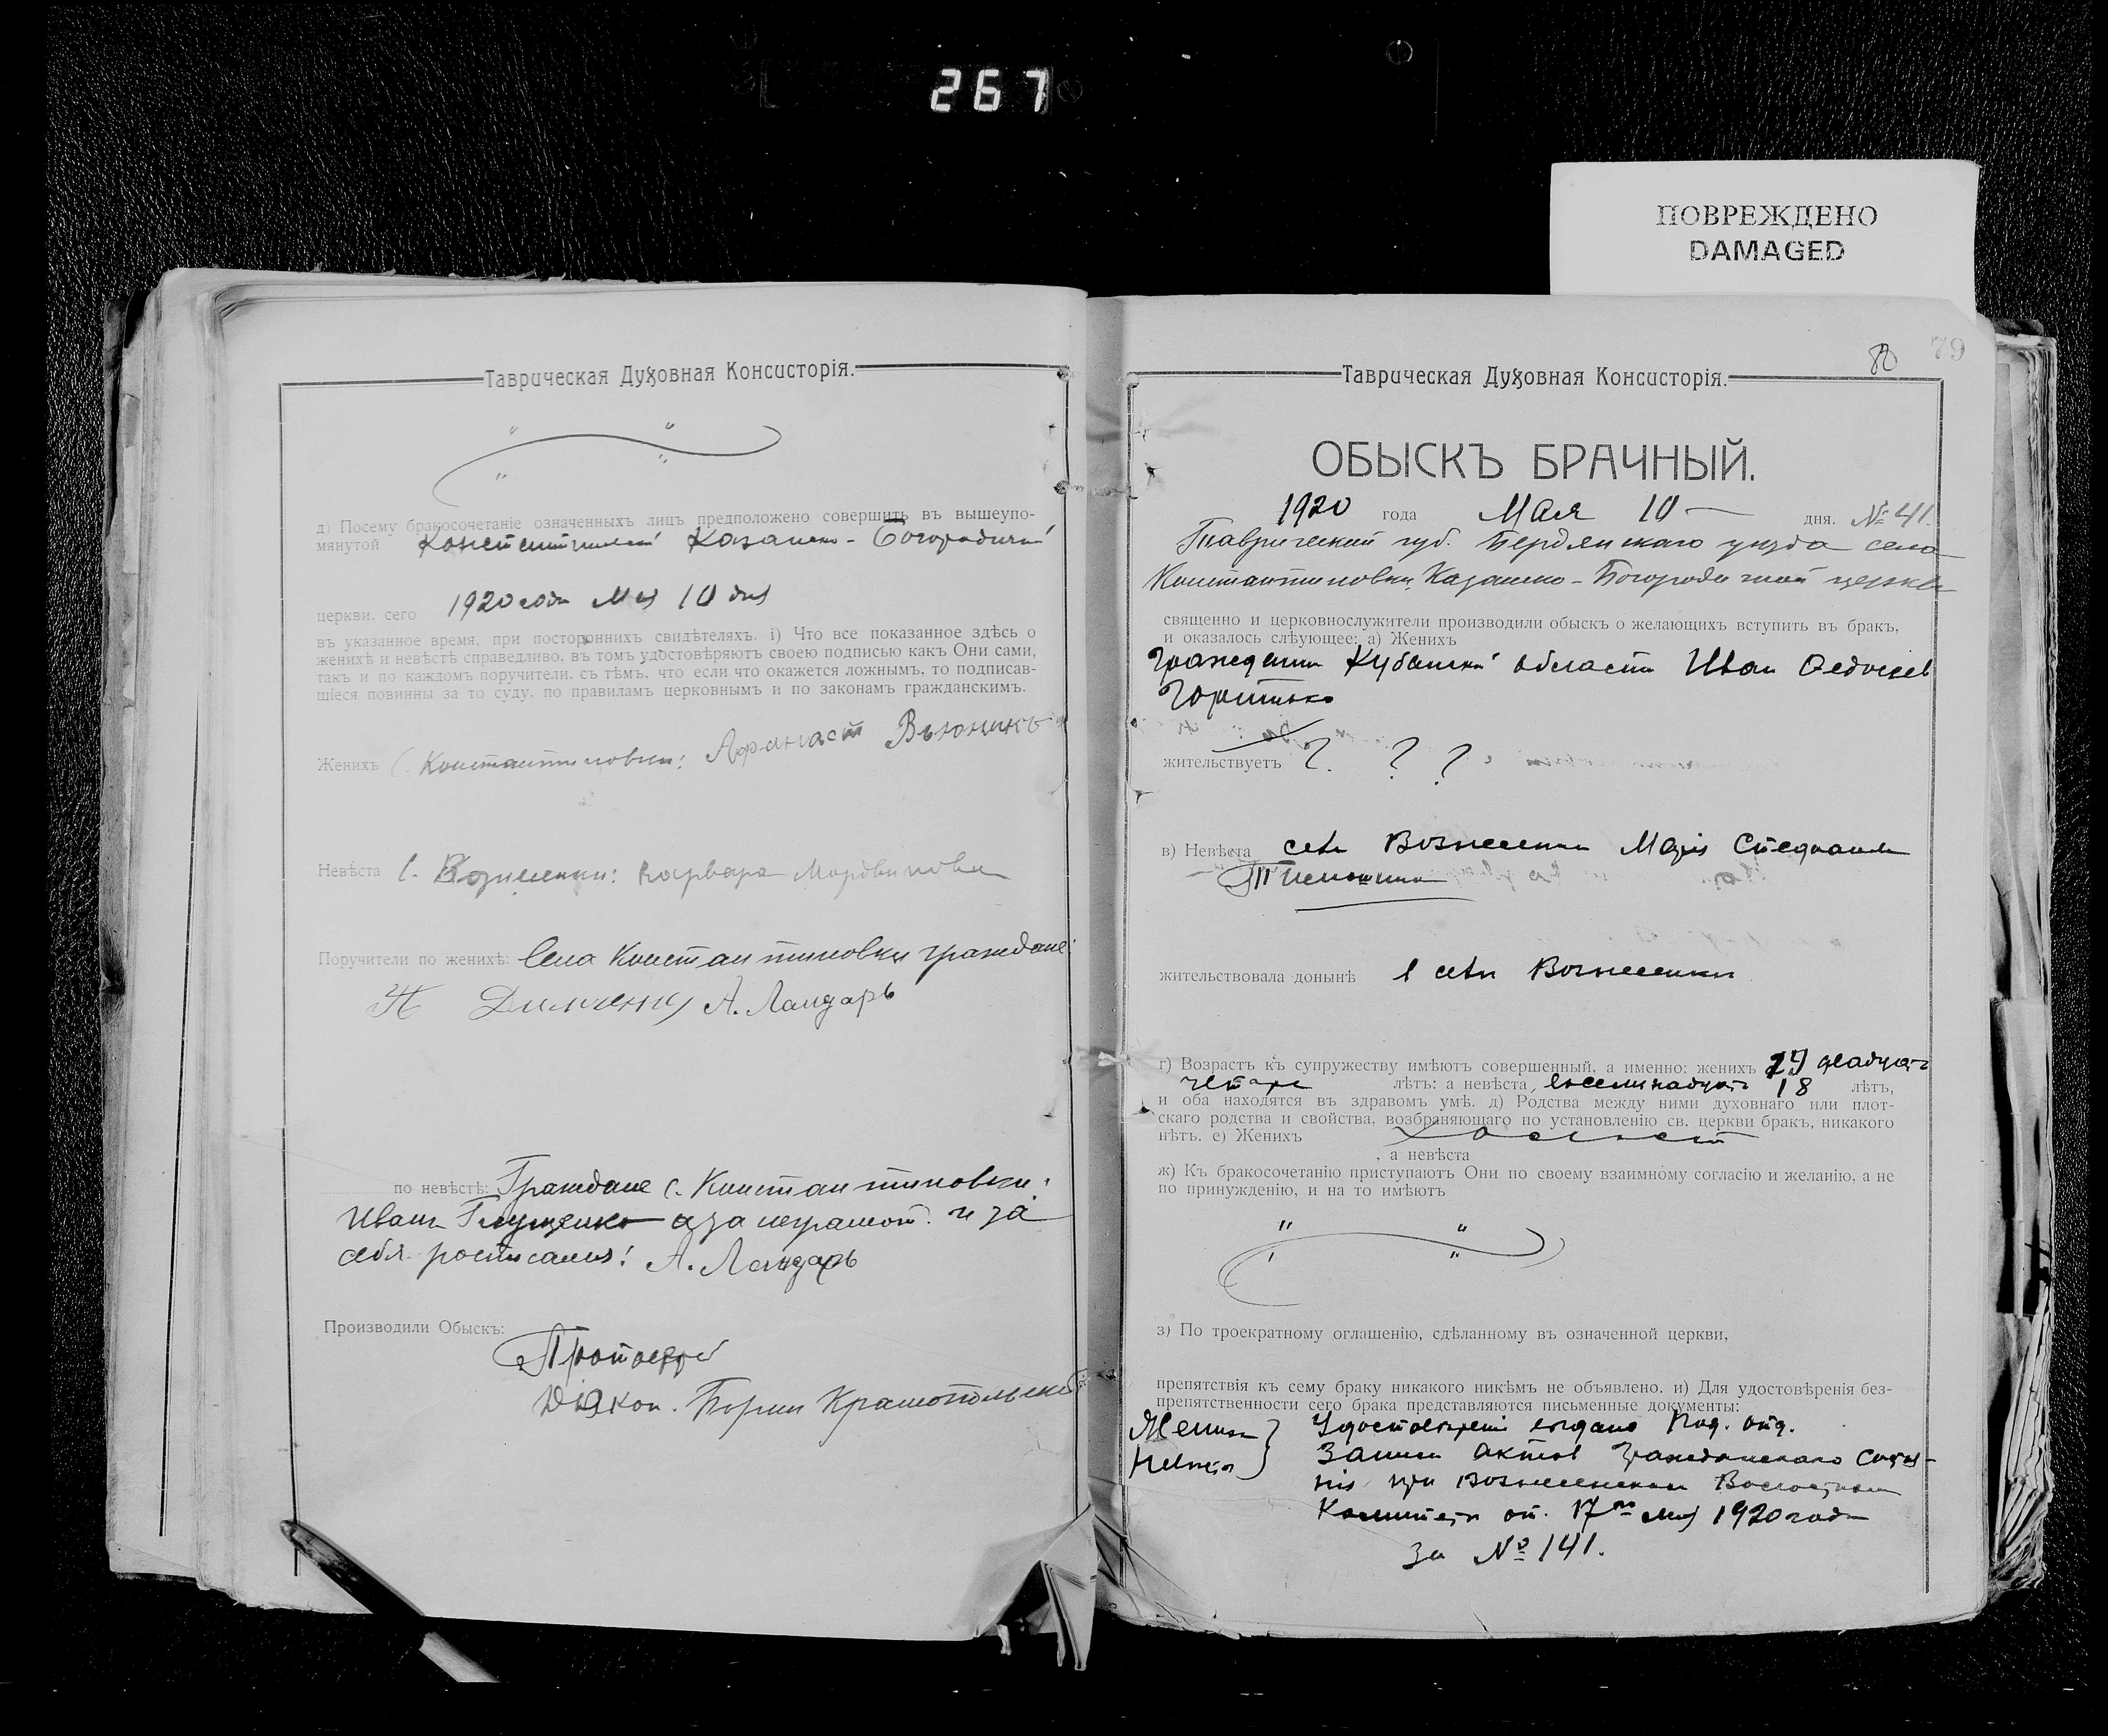 267
ПОВРЕЖДЕНО
DAMAGED
Таврическая Духовная Консисторія.
д) Посему бракосочетаніе означенныхъ лицъ предположено совершить въ вышеупо-
мянутой Казанско-Богородичной
церкви, сего 1920 года Мая 10 дня
въ указанное время, при постороннихъ свидѣтеляхъ. і) Что все показанное здѣсь о
женихѣ и невѣстѣ справедливо, въ томъ удостовѣряютъ своею подписью какъ Они сами,
такъ и по каждомъ поручители, съ тѣмъ, что если что окажется ложнымъ, то подписав-
шіеся повинны за то суду, по правиламъ церковнымъ и по законамъ гражданскимъ.
Женихъ С. Константиновки: Афанасий Вьюникъ
Невѣста С. Вознесенки: Варвара Мордвинова
Поручители по женихѣ: Села Константиновки граждане:
А. Ландарь
по невѣстѣ: Граждане с. Константиновки:
Иванъ Глущенко а за неграмот. и за
себя росписался: А. Ландарь
Производили Обыскъ:
Протоіерей
Діакон. Борис
79
80
Таврическая Духовная Консисторія.
ОБЫСКЪ БРАЧНЫЙ.
1920 года Мая 10 — дня. № 41.
Таврической губ. Бердянскаго уезда села
Константиновки, Казанско-Богородичной церкви
священно и церковнослужители производили обыскъ о желающихъ вступить въ бракъ,
и оказалось слѣующее: а) Женихъ
гражданин Кубанской области Иван Федосеев
жительствуетъ ? ? ?
в) Невѣста села Вознесенки Марія Стефанова
жительствовала донынѣ в селе Вознесенки
г) Возрастъ къ супружеству имѣютъ совершенный, а именно: женихъ 24 двадцать
четыре лѣтъ: а невѣста, восемнадцать 18 лѣтъ,
и оба находятся въ здравомъ умѣ. д) Родства между ними духовнаго или плот-
скаго родства и свойства, возбраняющаго по установленію св. церкви бракъ, никакого
нѣтъ. е) Женихъ холост
, а невѣста
ж) Къ бракосочетанію приступаютъ Они по своему взаимному согласію и желанію, а не
по принужденію, и на то имѣютъ
з) По троекратному оглашенію, сдѣланному въ означенной церкви,
препятствія къ сему браку никакого никѣмъ не объявлено. и) Для удостовѣренія без-
препятственности сего брака представляются письменные документы:
Жених Невеста } Удостоверение выдано Под. отд.
Записи актов гражданскаго состоя-
нія при Вознесенском Волостном
Комитете от 17го Мая 1920 года
за № 141.